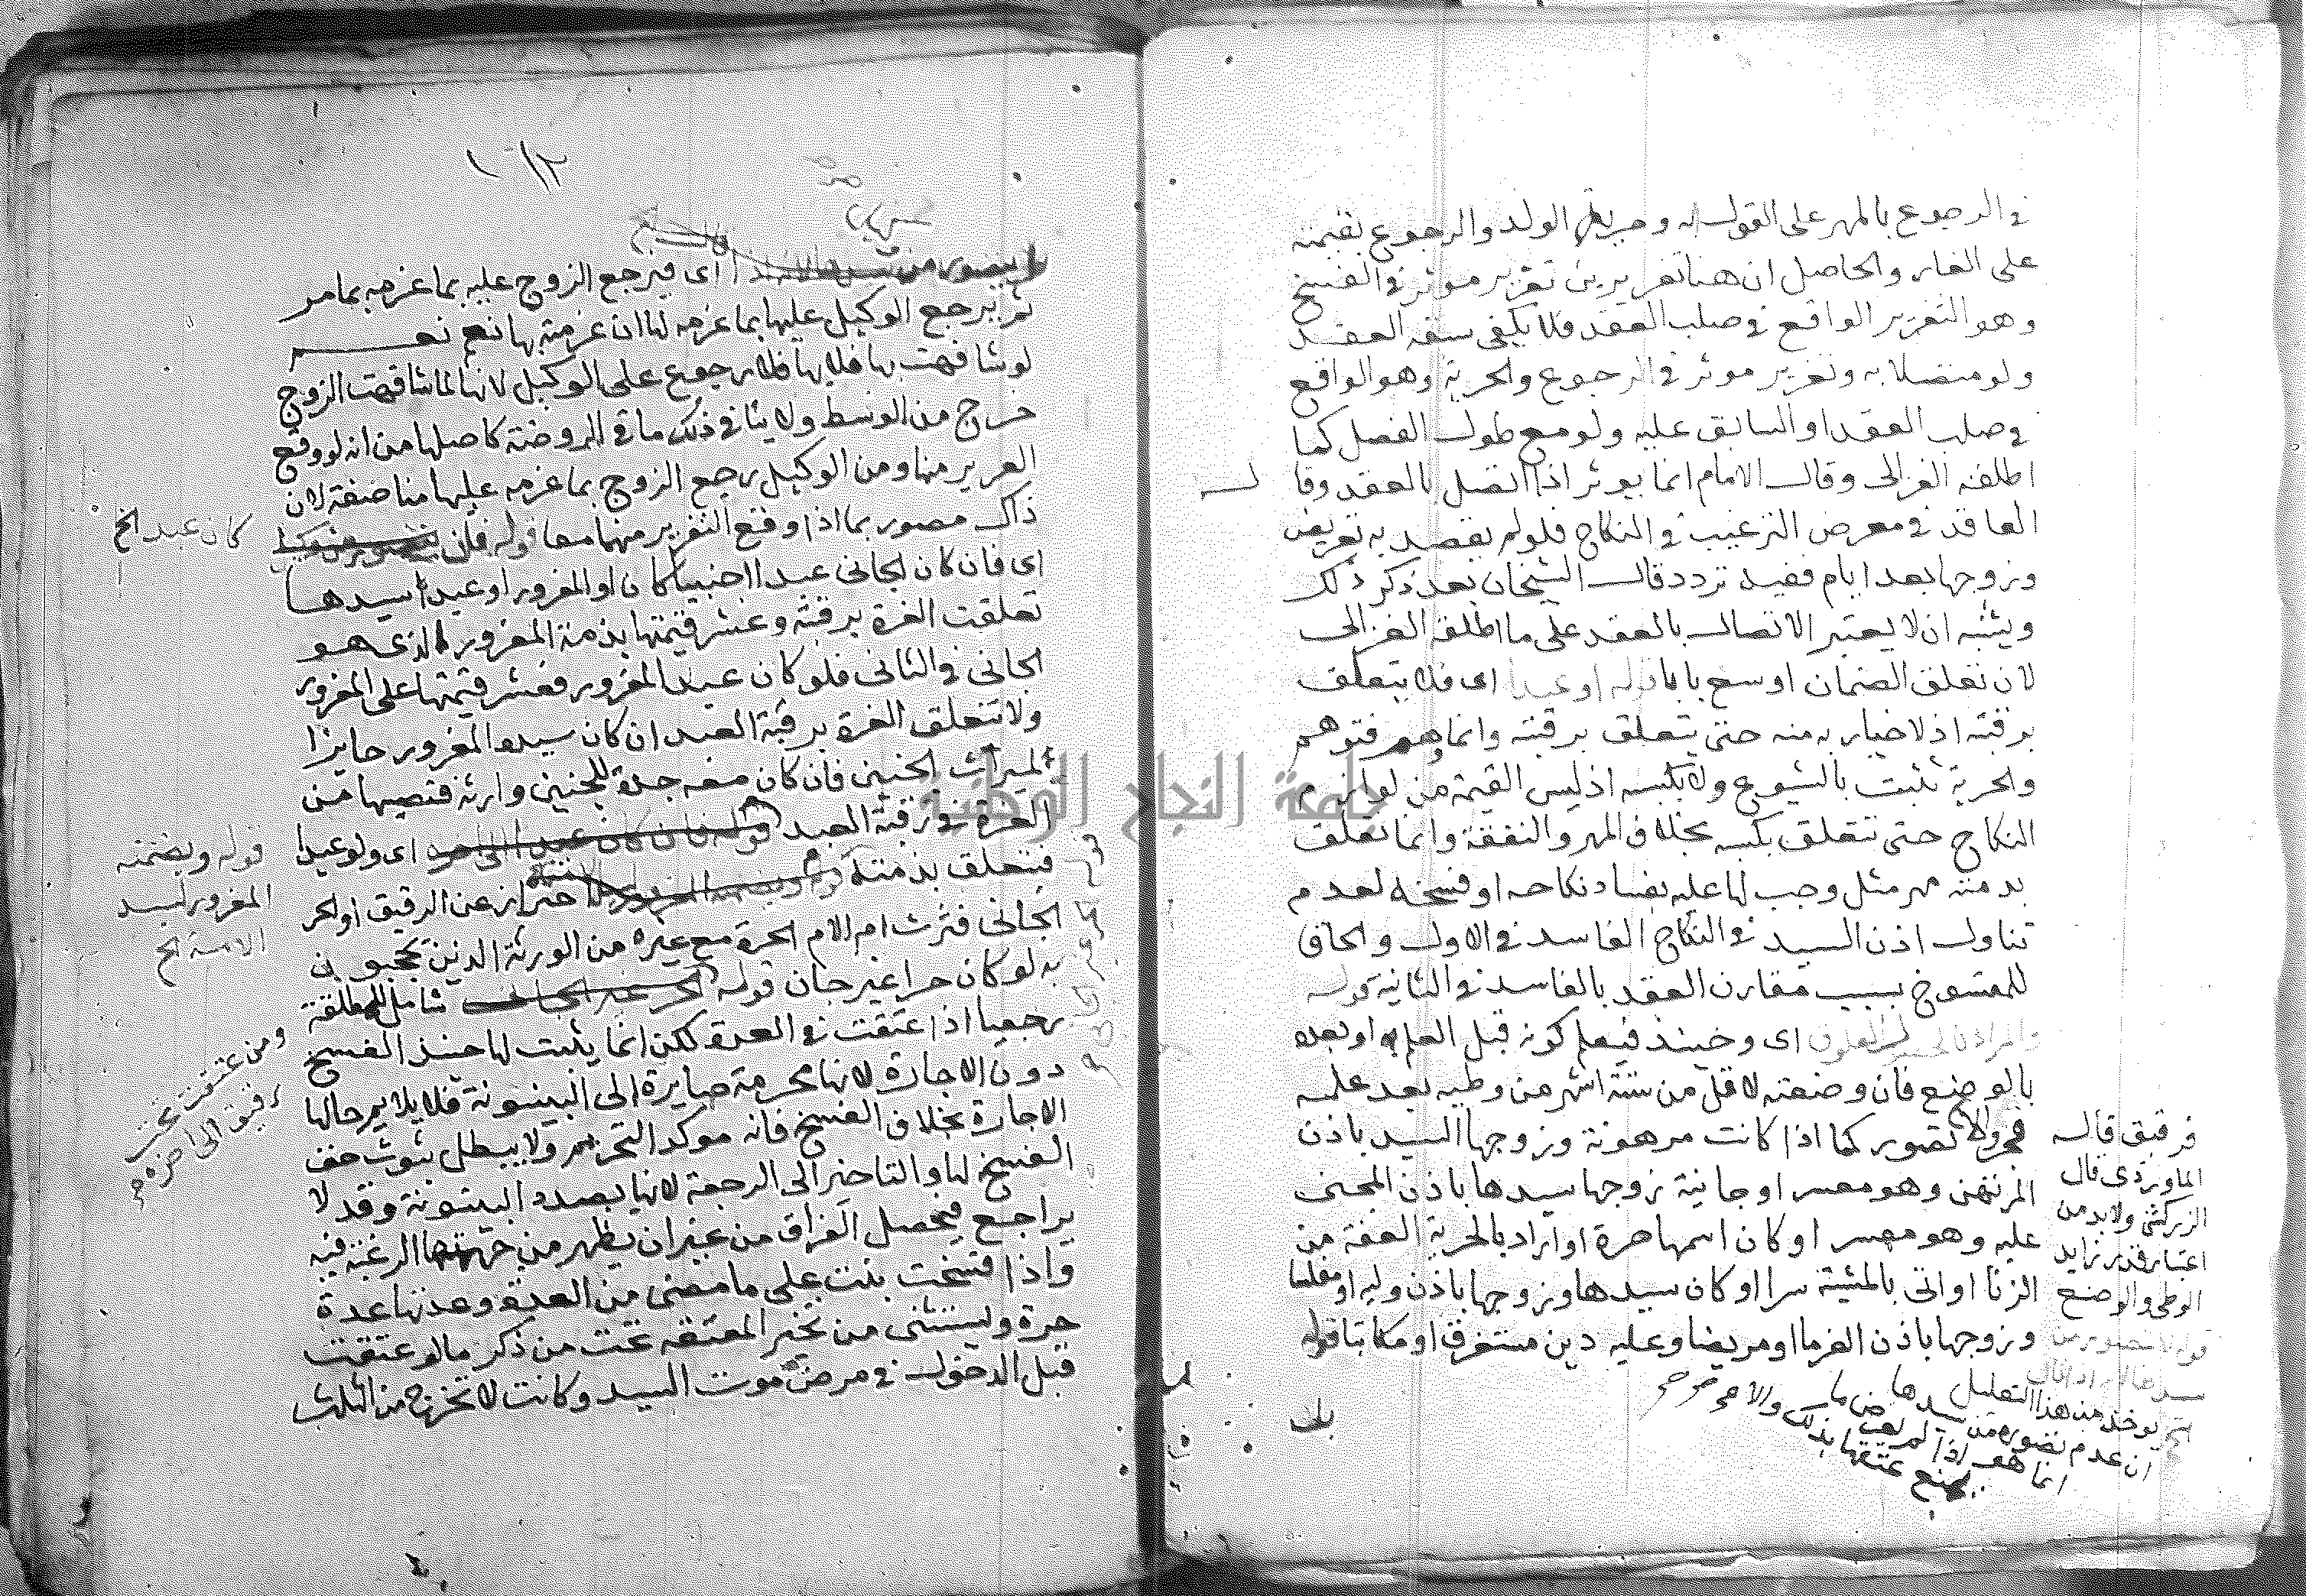 في الرجوع بالمهر على القول به وحرية الولد والرجوع بقيمته
على الغار والحاصل ان هنا تغريرين تغرير موثر في الفسخ
وهو التغرير الواقع في صلب العقد فلا يكفي سبقه العقد
ولو متصلا به وتغرير موثر في الرجوع والحرية وهو الواقع
في صلب العقد او السابق عليه ولو مع طول الفصل كما
اطلقه الغزالي وقال الامام انما يوثر اذا اتصل بالعقد وقا
له
العاقد في معرض الترغيب في النكاح فلو لم يقصد به تحريض
وزوجها بعد ايام ففيه تردد قال الشيخان بعد ذكر ذلك
ويشبه ان لا يعتبر الاتصال بالعقد على ما اطلقه الغزالي
لان تعلق الضمان اوسع بابا قوله او عبدا اي فلا يتعلق
برقبته اذ لا جناية منه حتى يتعلق برقبته وانما وهم فتوهم
والحرية تثبت بالشروع ولا بكسبه اذ ليس القيمة من لوازم
النكاح حتى تتعلق بكسبه بخلاف المهر والنفقة وانما تعلق
بذمته مهر مثل وجب لها عليه بفساد نكاحه او فسخه لعدم
تناول اذن السيد في النكاح الفاسد في الاول والحاق
للمفسوخ بسبب مقارن العقد بالفاسد في الثانية قوله
اي وحينئذ فيعلم كونه قبل العلم او بعده
بالوضع فان وضعته لاقل من ستة اشهر من وطيه بعد علمه
فحر والا تصور كما اذا كانت مرهونة وزوجها السيد باذن
المرتهن وهو معسر او جانية زوجها سيدها باذن المجني
عليه وهو معسر او كان اسمها حرة او اراد بالحرية العفة من
الزنا او اتى بالمشيئة سرا او كان سيدها وزوجها باذن وليه او مفلسا
وزوجها باذن الغرما او مريضا وعليه دين مستغرق او مكاتبا قوله
فرقيق قاله
الماوردي قال
الزركشي ولا بد من
اعتبار قدر زايد
الوطي والوضع
يوخذ من هذا التعليل
ان عدم تصوره من سيدها
انما هو اذا لم
يمنع عتقها بذلك والا
اي فيرجع الزوج عليه بما غرمه بما مر
ثم يرجع الوكيل عليها بما غرمه لها ان غرمته بها نعم
لو شافهت بها فلا رجوع على الوكيل لانها لما شافهت الزوج
خرج من الوسط ولا ينافي ذلك ما في الروضة كاصلها من انه لو وقع
الغرير منها ومن الوكيل رجع الزوج بما غرمه عليهما مناصفة لان
ذاك مصور بما اذا وقع التغرير منهما معا قوله فان
كان عبد الخ
اي فان كان الجاني عبدا اجنبيا كان او المغرور او عبد سيدها
تعلقت الغرة برقبته وعشر قيمتها بذمة المغرور الذي هو
الجاني في الثاني فلو كان عبد المغرور فعشر قيمتها على المغرور
ولا تتعلق الغرة برقبة العبد ان كان سيده المغرور حايزا
لميراث الجنين فان كان معه جدة للجنين وارثة فنصيبها من
الغرة في رقبة العبد اي ولو عبدا
فتتعلق بذمته احتراز عن الرقيق او الحر
قوله ويضمنه
المغرور لسيد
الامة الخ
الجاني فترث ام الام الحرة مع غيره من الورثة الذين يحجبون
به لو كان حرا غير جان قوله شامل للمطلقة
ومن عتقت تحت
رقيق الى اخره
رجعيا اذا عتقت في العدة لكن انما يثبت لها حينئذ الفسخ
دون الاجازة لانها محرمة صايرة الى البينونة فلا يلايم حالها
الاجازة بخلاف الفسخ فانه موكد التحريم ولا يبطل بثبوت حق
الفسخ لها والتاخير الى الرجعة لانها بصدد البينونة وقد لا
يراجع فيحصل الفراق من غير ان يظهر من جهتها الرغبة فيه
واذا فسخت بنت على ما مضى من العدة وعدتها عدة
حرة ويستثنى من تخير المعتقة تحت من ذكر ما لو عتقت
قبل الدخول في مرض موت السيد وكانت لا تخرج من الثلث
جامعة النجاح الوطنية